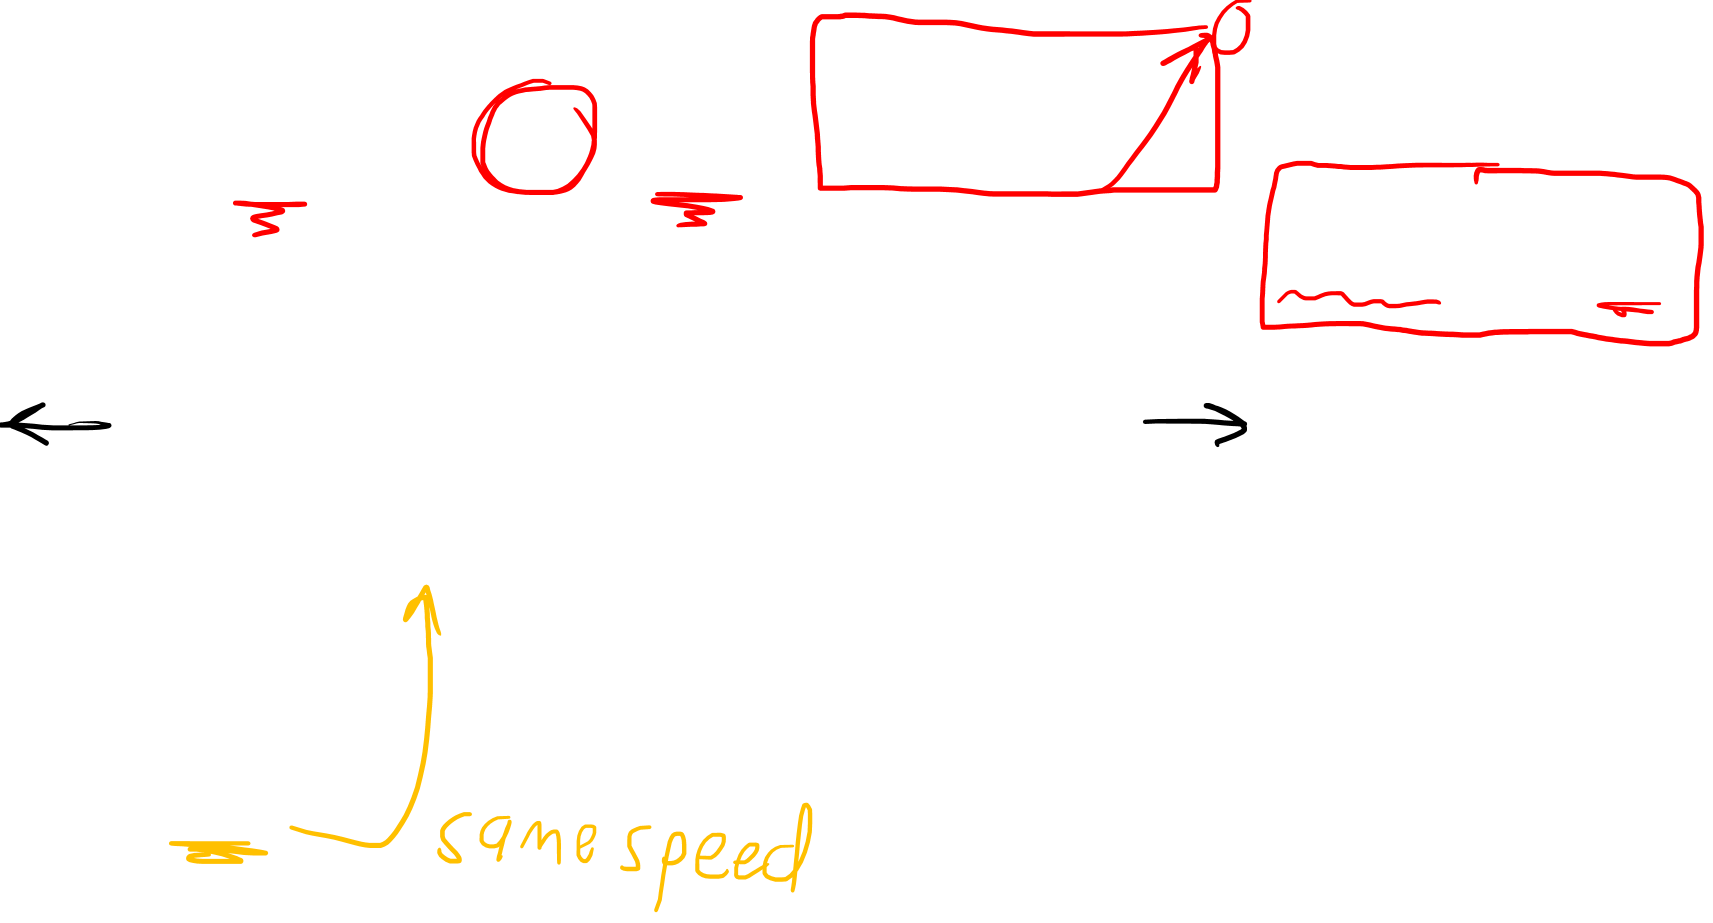 same speed